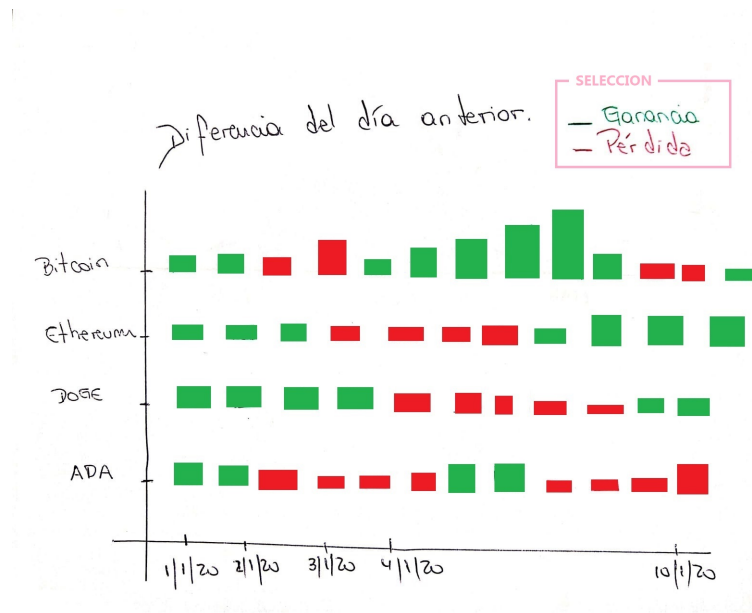 SELECCION
Diferencia del día anterior.
Ganancia
Pérdida
Bitcoin
Ethereum
DOGE
ADA
1/1/20 2/1/20 3/1/20 4/1/20 10/1/20